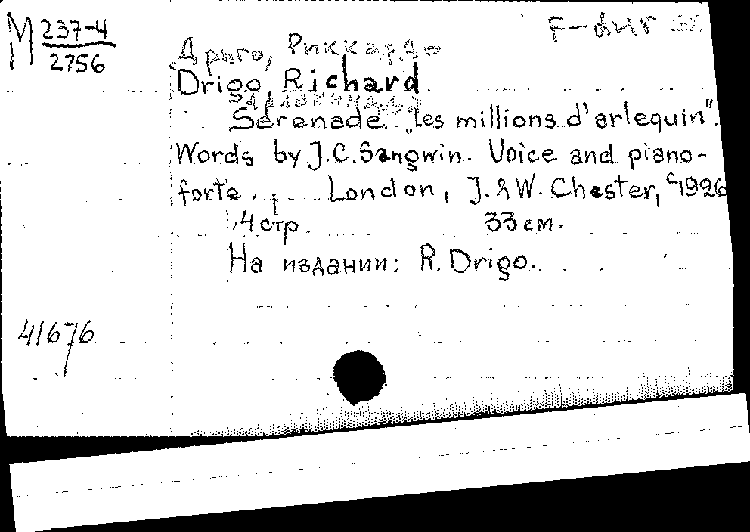 М 237-4
2756
Дриго, Риккардо
Drigo, Richard
Serenade "les millions d'arlequin".
Words by J.C. Sangwin. Voice and piano-
forte. London, J. & W. Chester, c1926
4 стр. 33 см.
На издании: R. Drigo.
41676